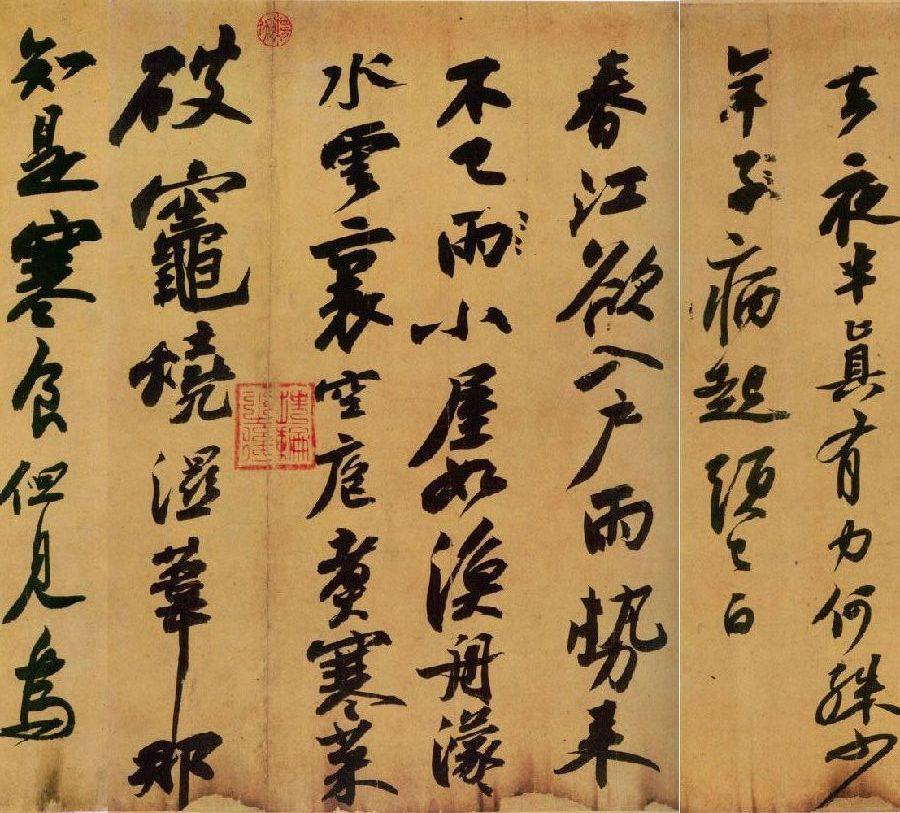 去夜半真有力何殊少
年子病起頭已白
春江欲入戶雨勢来
不已雨小屋如漁舟濛々
水雲裏空庖煮寒菜
破竈燒濕葦那
知是寒食但見烏